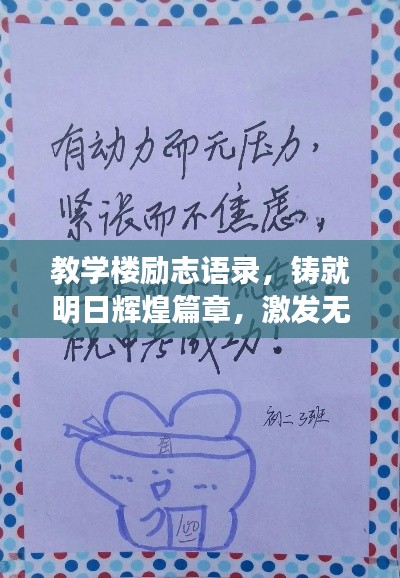 有动力而无压力，
紧张而不焦虑，
教学楼励志语录，铸就
明日辉煌篇章，激发无
祝中考成功！
初二3班
100